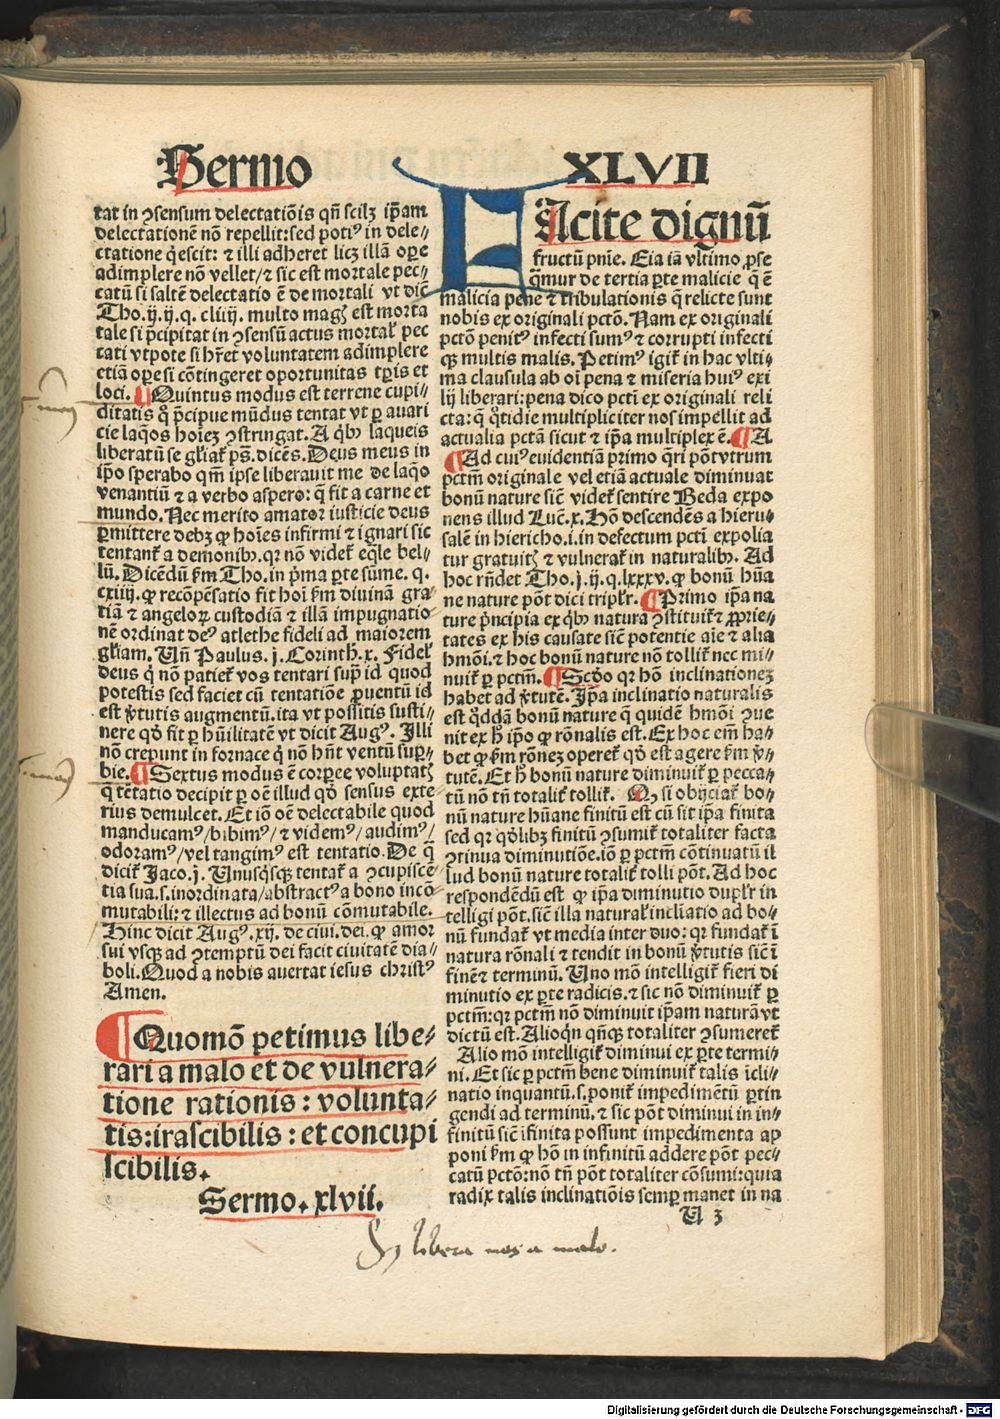 Sermo XLVII
tat in ꝯsensum delectatiōis qn̄ scilꝫ ip̄am
delectationē nō repellit: sed potiꝰ in dele⸗
ctatione q̇escit: ⁊ illi adheret licꝫ illā oꝑe
adimplere nō vellet/⁊ sic est mortale pec⸗
catū si saltē delectatio ē de mortali vt dic̄
Tho.ij.ij.q. cliiij. multo magꝭ est morta
tale si p̄cipitat in ꝯsensū actus mortaƚ pec
cati vtpote si hr̄et voluntatem adimplere
etiā oꝑe si cōtingeret oportunitas tꝑis et
loci. ¶ Quintus modus est terrene cupi⸗
ditatis q̊ p̄cipue mūdus tentat vt ꝑ auari
cie laq̄os hoīeꝫ ꝯstringat. A qͥbꝰ laqueis
liberatū se gƚiat̄ pš. dicēs. Deus meus in
ip̄o sperabo qm̄ ipse liberauit me de laq̄o
venantiū ⁊ a verbo aspero: q̄ fit a carne et
mundo. Nec merito amator iusticie deus
ꝑmittere debꝫ ꝙ hoīes infirmi ⁊ ignari sic
tentant̄ a demonibꝰ. qꝛ nō videt̄ eq̄le bel⸗
lū. Dicēdū ẜm Tho. in p̄ma ꝑte sūme. q.
cxiiij. ꝙ recōpēsatio fit hoī ẜm diuinā gra⸗
tiā ⁊ angeloꝝ custodiā ⁊ illā impugnatio⸗
nē ordinat deꝰ atlethe fideli ad maiorem
gƚiam. Vn̄ Paulus. j. Corinth. x. Fideƚ
deus qͥ nō patiet̄ vos tentari supͣ id quod
potestis sed faciet cū tentatiōe ꝓuentū id
est v̓tutis augmentū. ita vt possitis susti⸗
nere qd̓ fit ꝑ hūilitatē vt dicit Augꝰ. Illi
nō crepunt in fornace qͥ nō hn̄t ventū suꝑ⸗
bie. ¶ Sextus modus ē corꝑee voluptatꝭ
q̄ tētatio decipit ꝑ oē illud qd̓ sensus exte⸗
rius demulcet. Et iō oē delectabile quod
manducamꝰ/bibimꝰ/⁊ videmꝰ/audimꝰ/
odoramꝰ/vel tangimꝰ est tentatio. De q̄
dicit̄ Jaco.j. Unusqͥsqꝫ tentat̄ a ꝯcupisce⸗
tia sua.s. inordinata/abstractꝰ a bono incō⸗
mutabili: ⁊ illectus ad bonū cōmutabile.
Hinc dicit Augꝰ. xij. de ciui. dei. ꝙ amor
sui vsqꝫ ad ꝯtemptū dei facit ciuitatē dia⸗
boli. Quod a nobis auertat iesus christꝰ
Amen.
¶ Quomō petimus libe⸗
rari a malo et de vulnera⸗
tione rationis: volunta⸗
tis: irascibilis: et concupi
scibilis.
Sermo. xlvii.
FAcite dignū
fructū pn̄ie. Eia iā vltimo ꝓse
q̄mur de tertia ꝑte malicie q̄ ē
malicia pene ⁊ tribulationis q̄ relicte sunt
nobis ex originali pctō. Nam ex originali
pctō penitꝰ infecti sumꝰ ⁊ corrupti infecti
qꝫ multis malis. Petimꝰ igit̄ in hac vlti⸗
ma clausula ab oī pena ⁊ miseria huiꝰ exi
lij liberari: pena dico pctī ex originali reli
cta: q̄ q̊tidie multipliciter nos impellit ad
actualia pctā sicut ⁊ ip̄a multiplex ē. ¶ A
¶ Ad cuiꝰ euidentiā primo q̄ri pōt vtrum
pctm̄ originale vel etiā actuale diminuat
bonū nature sic̄ videt̄ sentire Beda expo
nens illud Luc̄.x. Hō descendēs a hieru⸗
salē in hiericho.i. in defectum pctī expolia
tur gratuitꝭ ⁊ vulnerat̄ in naturalibꝰ. Ad
hoc rn̄det Tho.j.ij.q.lxxxv. ꝙ bonū hūa
ne nature pōt dici tripƚr. ¶ Primo ip̄a na
ture p̄ncipia ex qͥbꝰ natura ꝯstituit̄ ⁊ ꝓprie⸗
tates ex his causate sic̄ potentie aīe ⁊ alia
hmōi. ⁊ hoc bonū nature nō tollit̄ nec mi⸗
nuit̄ ꝑ pctm̄. ¶ Scd̓o qꝛ hō inclinationeꝫ
habet ad v̓tutē. Ip̄a inclinatio naturalis
est qͦddā bonū nature q̄ quidē hmōi ꝯue
nit ex h̓ ip̄o ꝙ rōnalis est. Ex hoc em̄ ha⸗
bet ꝙ ẜm rōneꝫ operet̄ qd̓ est agere ẜm v̓⸗
tutē. Et h̓ bonū nature diminuit̄ ꝑ pecca⸗
tū nō tn̄ totalit̄ tollit̄. Qꝫ si obijciat̄ bo⸗
nū nature hūane finitū est cū sit ip̄a finita
sed qꝛ qd̓libꝫ finitū ꝯsumit̄ totaliter facta
ꝯtinua diminutiōe. iō ꝑ pctm̄ cōtinuatū il
lud bonū nature totalit̄ tolli pōt. Ad hoc
respondēdū est ꝙ ip̄a diminutio dupƚr in
telligi pōt. sic̄ illa naturaƚ inclīatio ad bo⸗
nū fundat̄ vt media inter duo: qꝛ fundat̄ ī
natura rōnali ⁊ tendit in bonū v̓tutis sic̄ ī
finē ⁊ terminū. Uno mō intelligit̄ fieri di
minutio ex ꝑte radicis. ⁊ sic nō diminuit̄ ꝑ
pctm̄: qꝛ pctm̄ nō diminuit ip̄am naturā vt
dictū est. Alioqͥn qn̄qꝫ totaliter ꝯsumeret̄
Alio mō intelligit̄ diminui ex ꝑte termi⸗
ni. Et sic ꝑ pctm̄ bene diminuit̄ talis īcli⸗
natio inquantū.s. ponit̄ impedimētū ꝑtin
gendi ad terminū. ⁊ sic pōt diminui in in⸗
finitū sic̄ īfinita possunt impedimenta ap
poni ẜm ꝙ hō in infinitū addere pōt pec⸗
catū pctō: nō tn̄ pōt totaliter cōsumi: quia
radix talis inclinatiōis semꝑ manet in na
V 3
libera nos a malo.
Digitalisierung gefördert durch die Deutsche Forschungsgemeinschaft - DFG